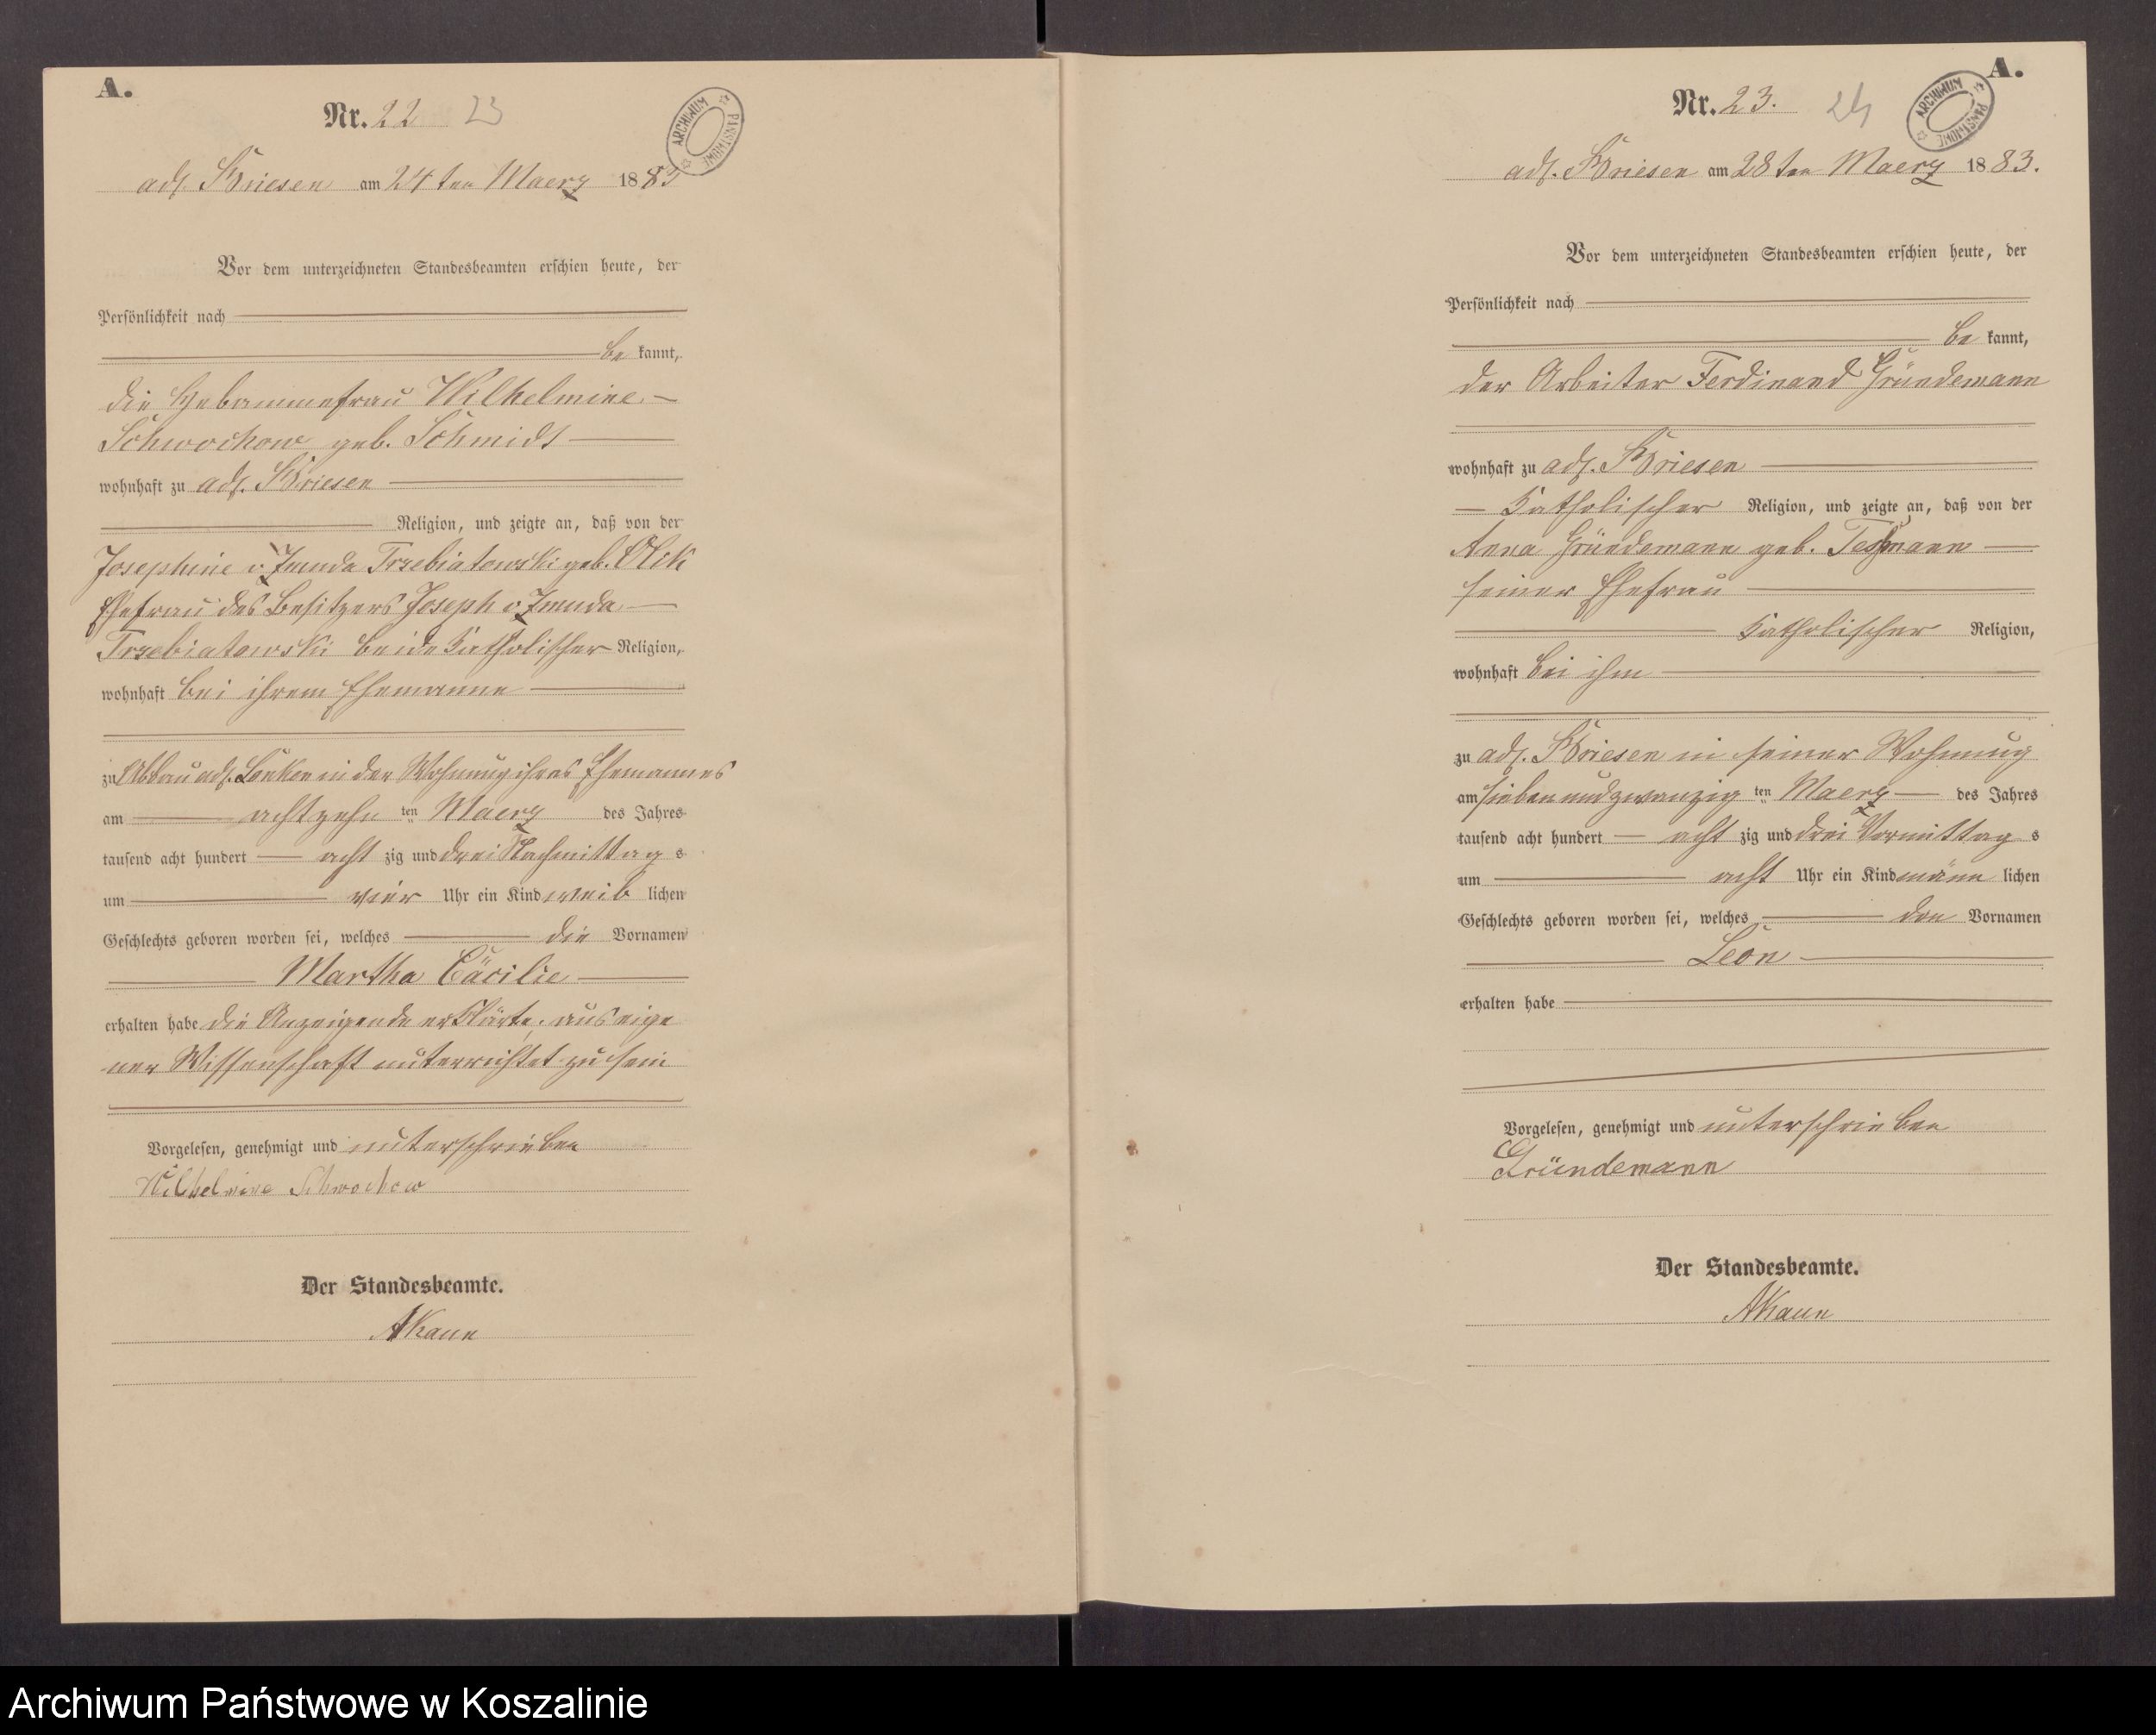 A.
Nr. 22 23
ARCHIWUM PAŃSTWOWE
adl. Briesen am 24ten Maerz 1883
Vor dem unterzeichneten Standesbeamten erschien heute, der
Persönlichkeit nach
be kannt,
die Hebammefrau Wilhelmine
Schwochow geb. Schmidt
wohnhaft zu adl. Briesen
Religion, und zeigte an, daß von der
Josephine v. Zmuda Trzebiatowski geb. Olik
Ehefrau des Besitzers Joseph v. Zmuda
Trzebiatowski beide katholischer Religion,
wohnhaft bei ihrem Ehemanne
zu Abbau adl. Lonken in der Wohnung ihres Ehemannes
am achtzehn ten Maerz des Jahres
tausend acht hundert acht zig und drei Nachmittag s
um vier Uhr ein Kind weib lichen
Geschlechts geboren worden sei, welches die Vornamen
Martha Cäcilie
erhalten habe die Anzeigende erklärte, aus eige
ner Wissenschaft unterrichtet zu sein
Vorgelesen, genehmigt und unterschrieben
Wilhelmine Schwochow
Der Standesbeamte.
AKaun
A.
Nr. 23. 24
ARCHIWUM PAŃSTWOWE
adl. Briesen am 28ten Maerz 1883.
Vor dem unterzeichneten Standesbeamten erschien heute, der
Persönlichkeit nach
be kannt,
der Arbeiter Ferdinand Gründemann
wohnhaft zu adl. Briesen
katholischer Religion, und zeigte an, daß von der
Anna Gründemann geb. Teßmann
seiner Ehefrau
katholischer Religion,
wohnhaft bei ihm
zu adl. Briesen in seiner Wohnung
am siebenundzwanzig ten Maerz des Jahres
tausend acht hundert acht zig und drei Vormittag s
um acht Uhr ein Kind männ lichen
Geschlechts geboren worden sei, welches den Vornamen
Leon
erhalten habe
Vorgelesen, genehmigt und unterschrieben
Gründemann
Der Standesbeamte.
AKaun
Archiwum Państwowe w Koszalinie